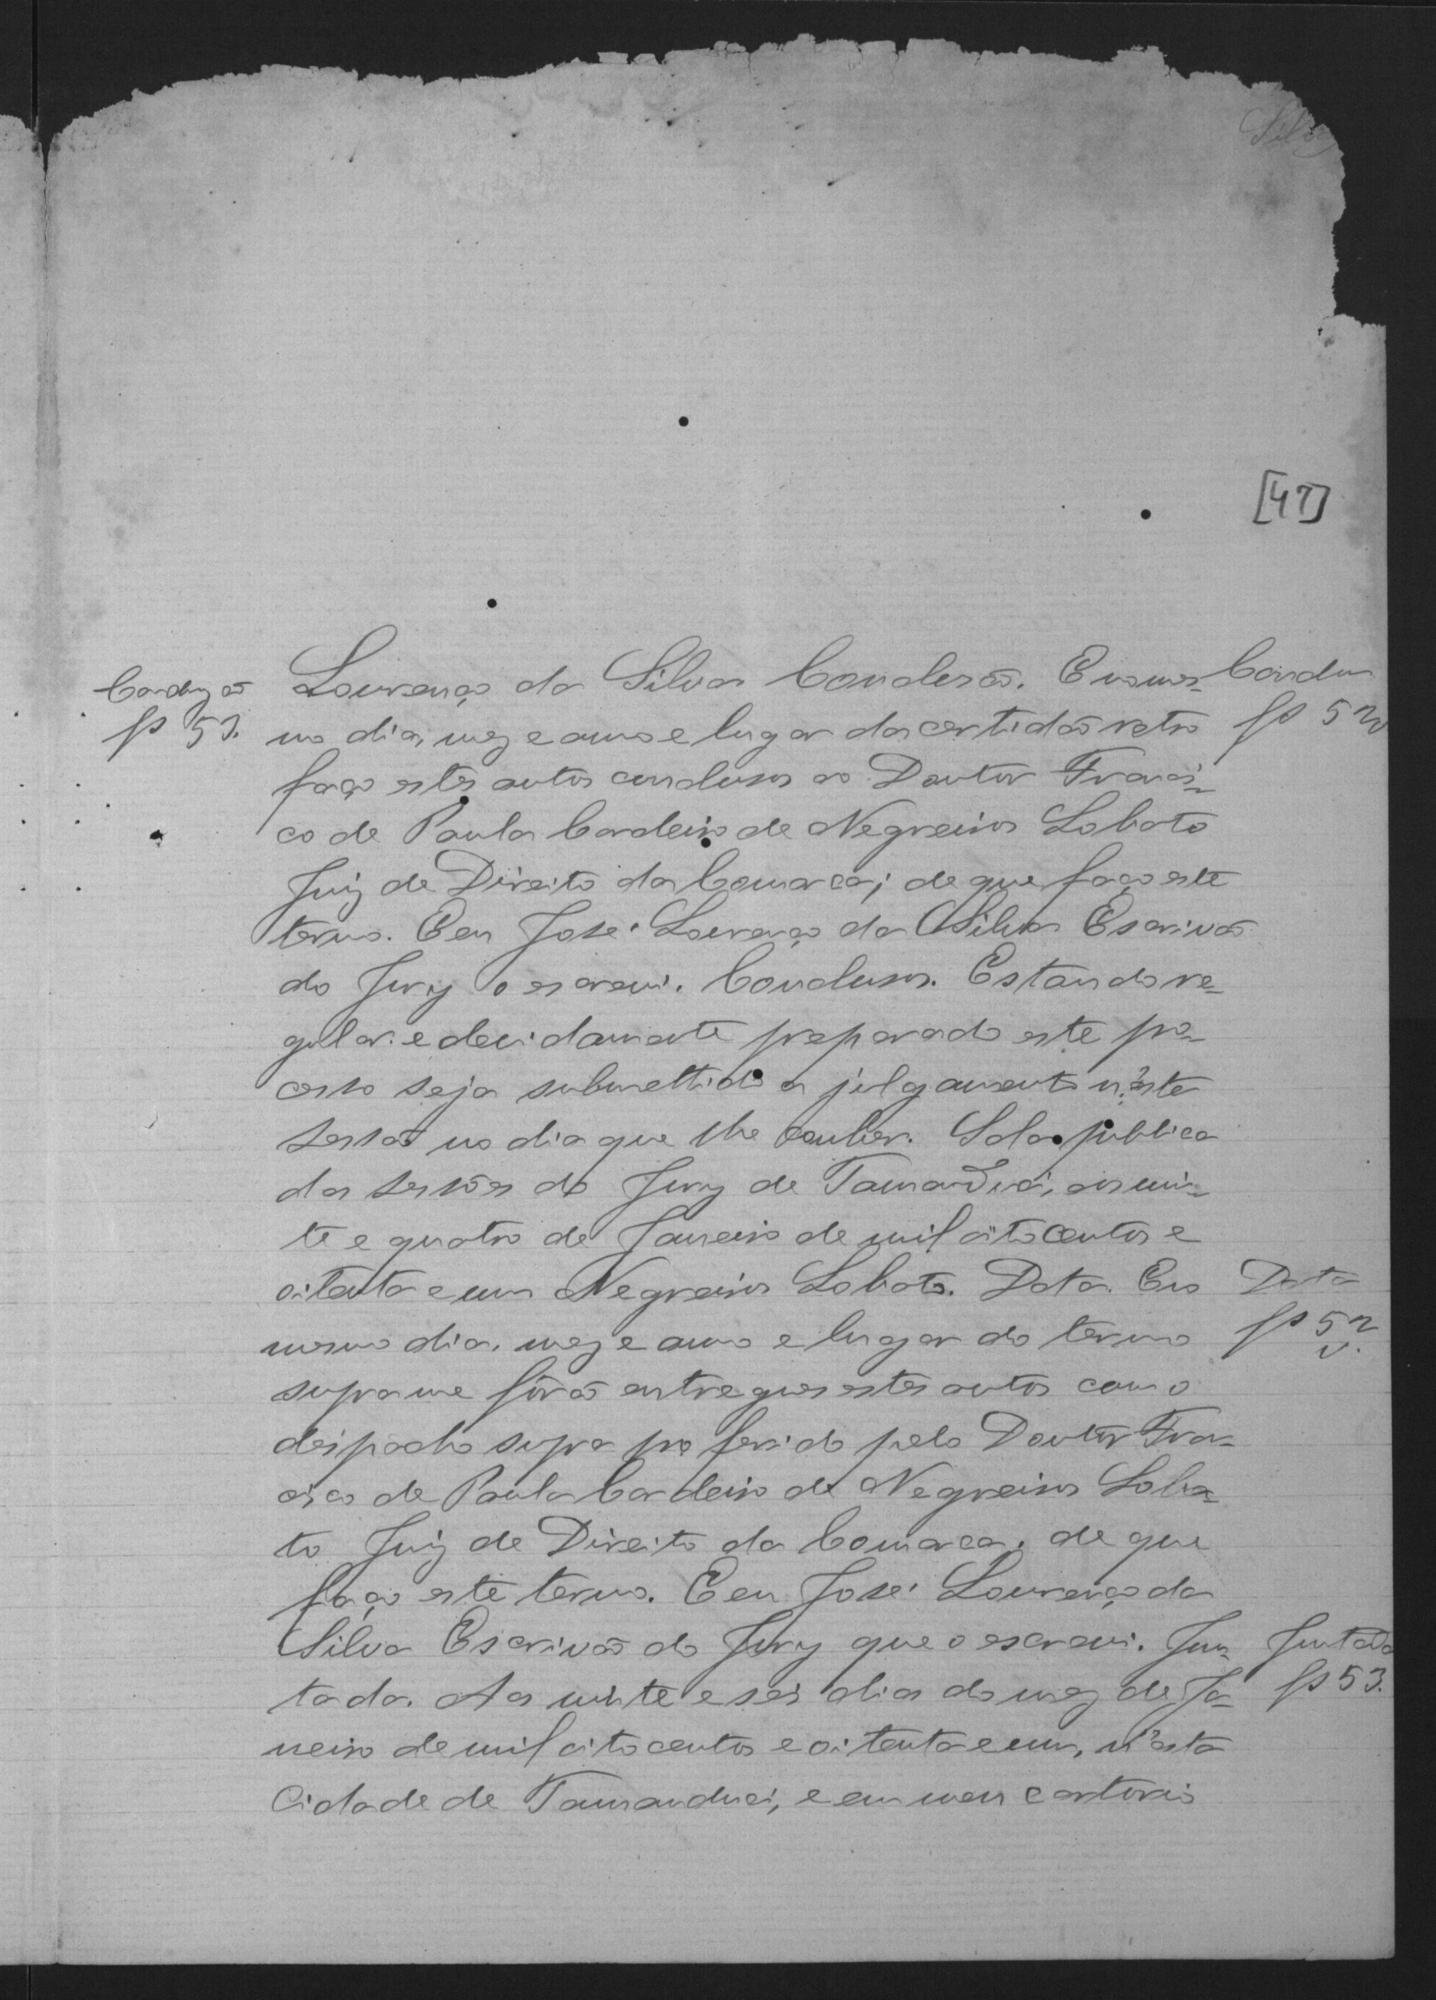 Silva
[47]
Lourenço da Silva Conclusão. E no mes-
mo dia, mez e anno e lugar da certidão retro
faço estes autos conclusos ao Doutor Francis-
co de Paula Cordeiro de Negreiros Lobato
Juiz de Direito da Comarca; de que faço este
termo. Eeu José Lourenço da Silva Escrivão
do Jury o escrevi. Conclusos. Estando re-
gular e devidamente preparado este pro-
cesso seja submettido a julgamento n'esta
sessão no dia que lhe couber. Sala publica
das sessões do Jury de Tamanduá, aos vin-
te e quatro de Janeiro de mil oito centos e
oitenta e um Negreiros Lobato. Data. E no
mesmo dia, mez e anno e lugar do termo
supra me fôrão entregues estes autos com o
despacho supra proferido pelo Doutor Fran-
cisco de Paula Cordeiro de Negreiros Loba-
to Juiz de Direito da Comarca, de que
faço este termo. Eeu José Lourenço da
Silva Escrivão do Jury que o escrevi. Jun-
tada. Aos vinte e seis dias do mez de Ja-
neiro de mil oito centos e oitenta e um, n'esta
Cidade de Tamanduá, e em meu cartorio
fs 53.
fs 52v
Data
fs 52
v.
Juntada
fs 53.